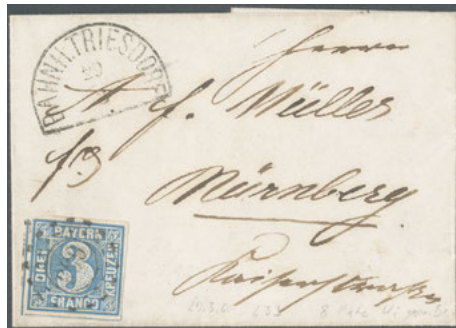 BAHNH.TRIESDORF
Herrn
A. f. Müller
fr3
Nürnberg
Kaiserstraße
BAYERN
DREI 3 KREUZER
FRANCO